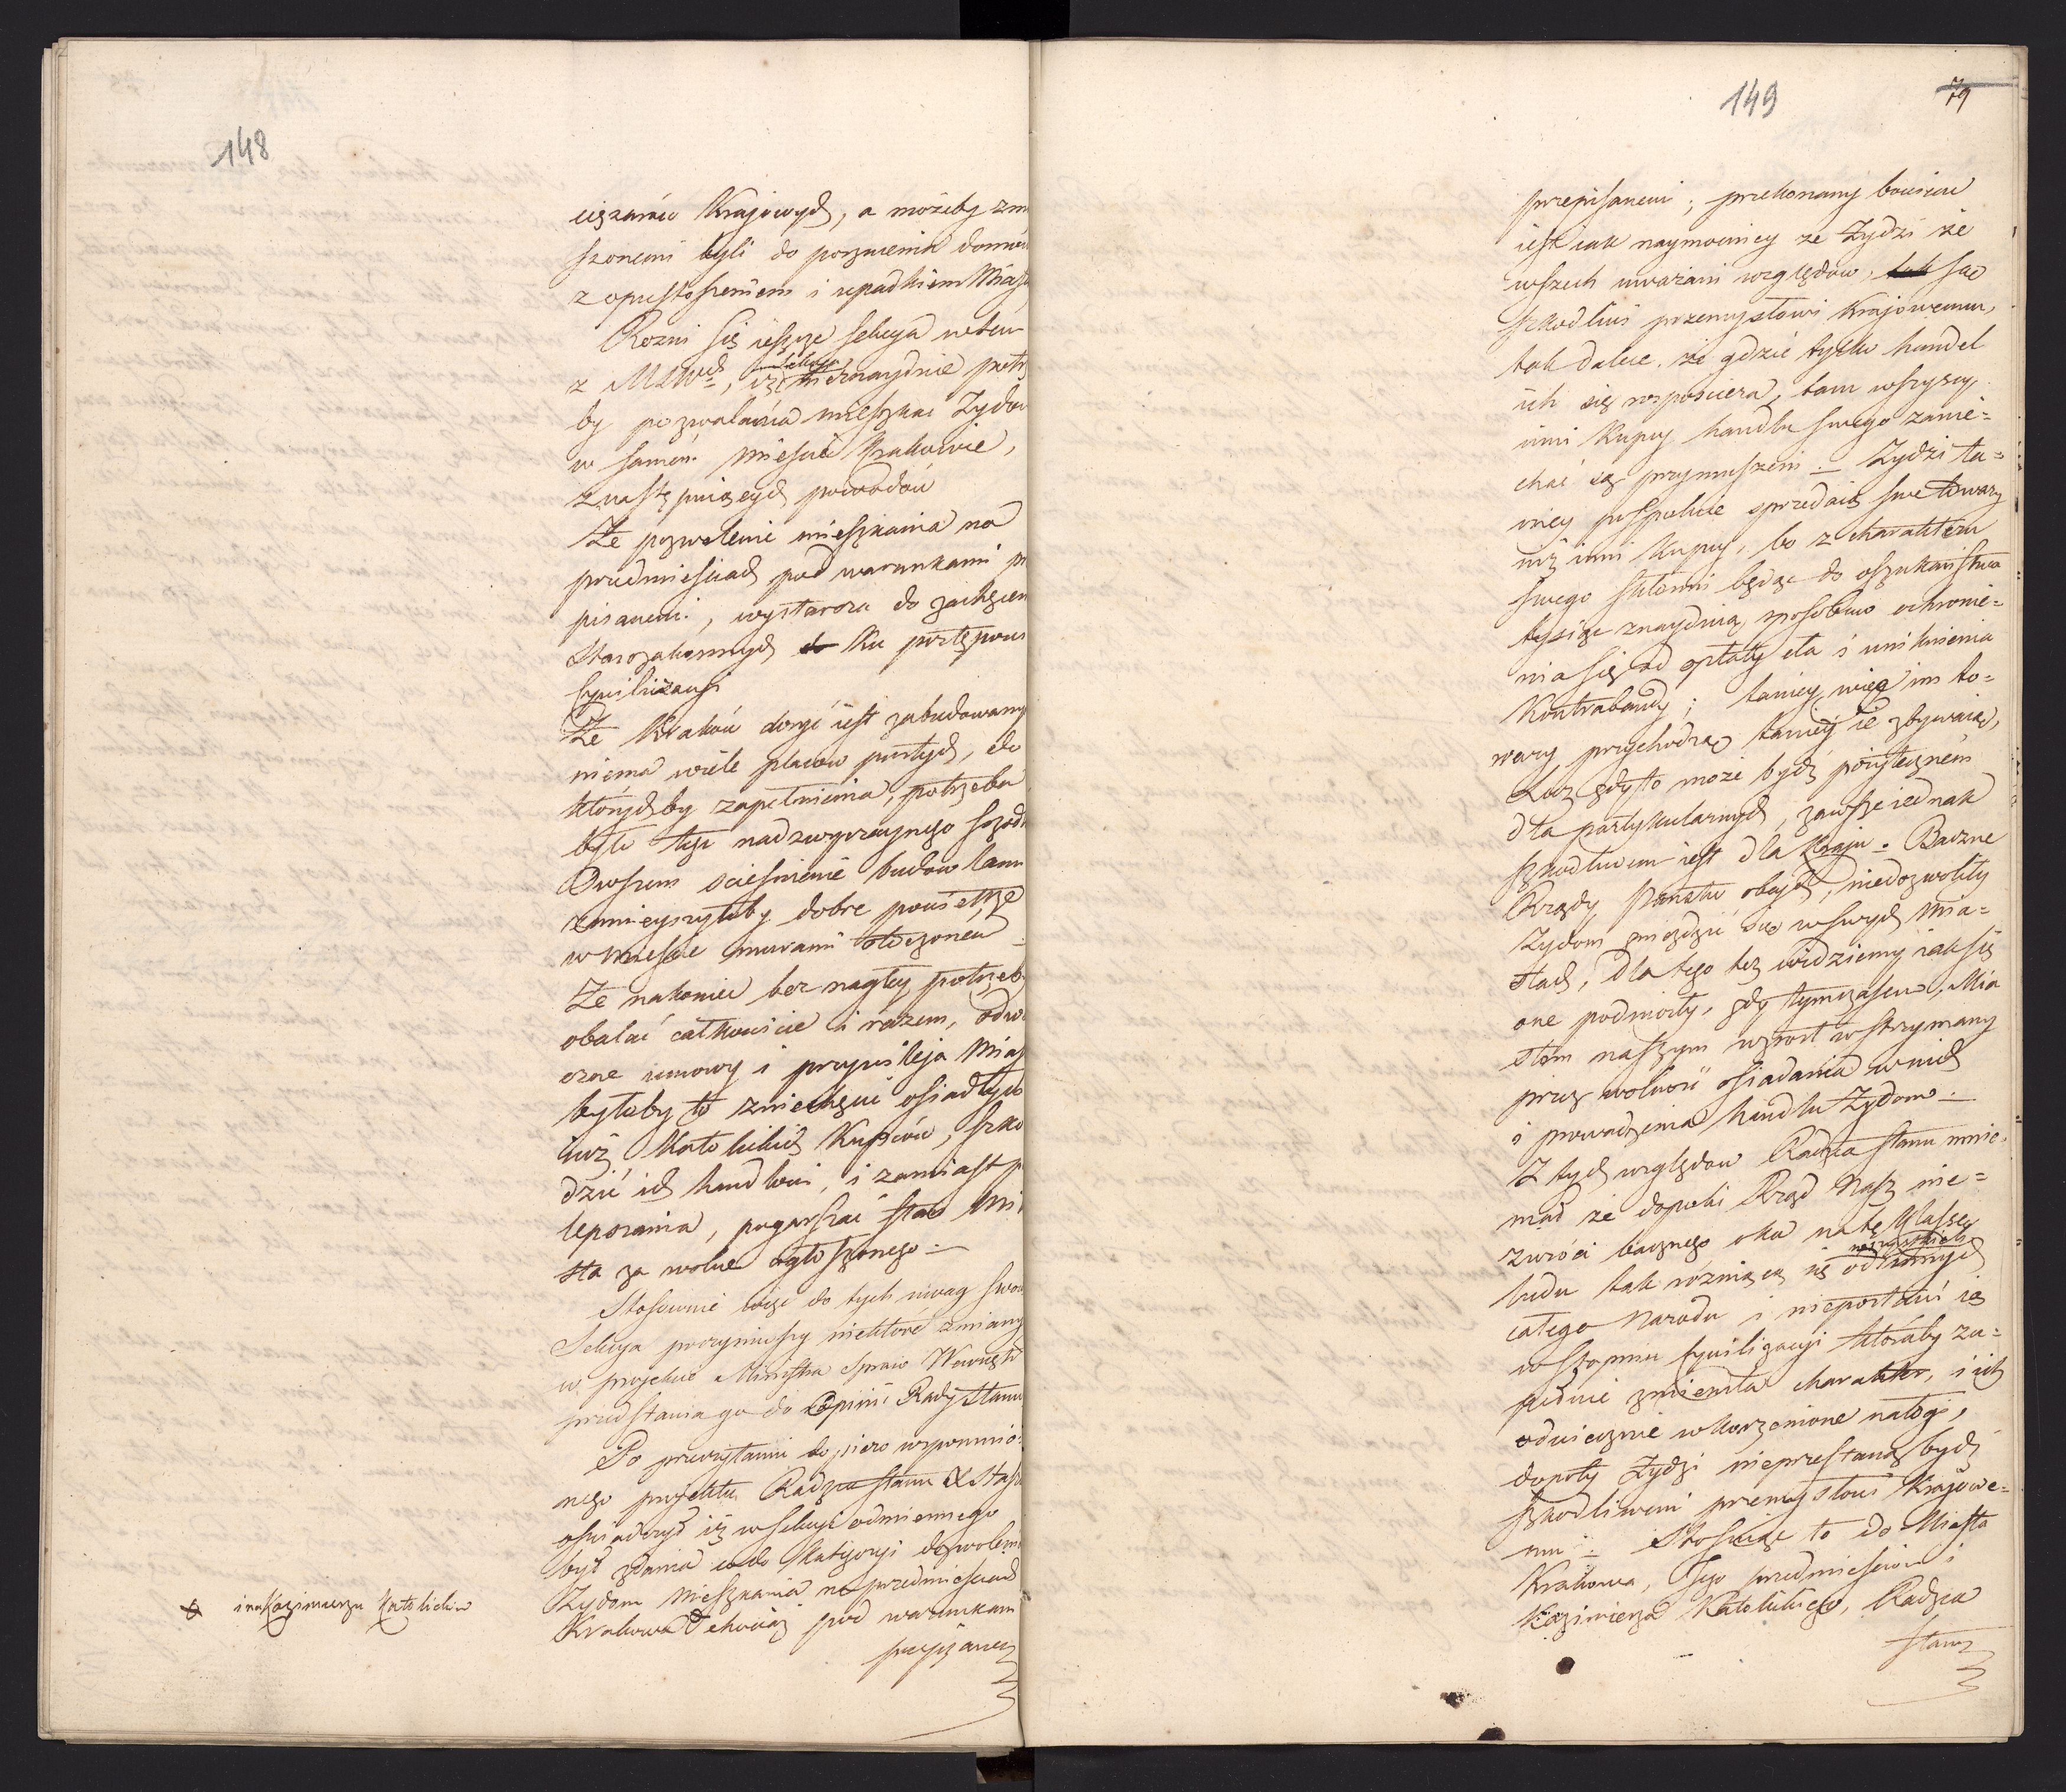 148
ciężarów Krajowych, a możeby zmu
szonemi byli do porzucenia domów
z opustoszeniem i upadkiem Miasta
Rozni się ieszcze Sekcya w tem
z MSWch, iż Sekcya nieznayduie potrze
by pozwalania mieszkać Żydom
w samém Mieście Krakowie,
z następuiących powodów
Że pozwolenie mieszkania na
przedmieściach pod warunkami prze
pisanemi, wystarcza do zachęcen
Starozakonnych do ku postępowi
Cywilizacyi
Że Kraków dosyć iest zabudowany
niema wiele placow pustych, do
którychby zapełnienia, potrzeba
było tego nadzwyczaynego szodk
Owszem sciesnienie budowlami
zmnieyszyłoby dobre powietrze
w mieście murami otoczonem
Że nakoniec bez nagłey potrzeby
obalać całkowicie i razem, odwie
czne umowy i przywileja Miast
byłoby to zniechęcić osiadłych
iuż Katolickich Kupców, szko
dzić ich handlowi, i zamiast po
lepszenia, pogarszać stan Mia
sta za wolne ogłoszonego =
Stosownie więc do tych uwag swoich
Sekcya poczyniwszy niektóré zmiany
w projekcie Ministra Spraw Wewnętr
przedstawia go do Opinii Rady Stanu
Po przeczytaniu dopiero wspomnio=
nego projektu Radzca Stanu X Stasz
oświadczył iż w Sekcyi odmiennego
był zdania co do Kategoryi dozwolenia
Żydom Mieszkania na przedmiesciach
Krakowa chociaż pod warunkami
i na Kazimierzu Katolickim
przepisanemi
149
79
przepisanemi; przekonany bowiem
iest iak naymocniey że Żydzi ze
wszech uważani względów, tak są
szkodliwi przemysłowi Krajowemu,
tak dalece. że gdzie tylko handel
ich się rozpościera, tam wszyscy
inni Kupcy handlu swego zanie=
chać są przymuszeni = Żydzi ta=
niey pospolicie sprzedaią swe towary
niż inni Kupcy, bo z charakteru
swego skłonni będąc do oszukaństwa
tysiąc znaydują sposobów ochronie=
nia się od opłaty cła i uniknienia
Kontrabandy; taniey więc im to=
wary przychodzą taniéy ie zbywaią,
Lecz gdy to może bydź pożyteczném
dla partykularnych, zawsze iednak
szkodliwem iest dla Kraju. Baczne
Rządy Państw obcych, niedozwoliły
Żydom gniezdzić się w swych Mia=
stach, dla tego też widziemy iak się
one podniosły, gdy tymczasem, Mia
stom naszym wzrost wstrzymany
przez wolność osiadania w nich
i prowadzenia handlu Żydom =
Z tych względów Radzca Stanu mnie=
mał że dopoki Rząd Nasz nie=
zwróci bacznego oka na tę Klassę
ludu tak rózniącą się od innych
całego Narodu i niepostawi ią
w stopniu Cywilizacyi któraby zu=
pełnie zmieniła charakter, i ich
odwiecznie wkorzenione nałogi,
dopóty Żydzi nieprzestaną bydź
szkodliwemi przemysłowi Krajowe=
mu = Stosując to do Miasta
Krakowa, Jego przedmieściow i
Kazimierza Katolickiego, Radzca
Stanu